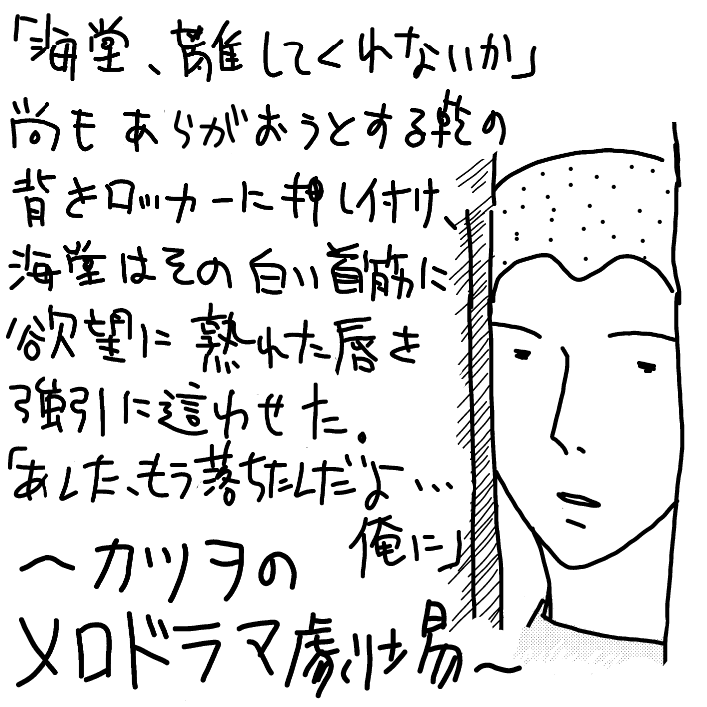 「海堂、離してくれないか」
尚もあらがおうとする乾の
背をロッカーに押し付け、
海堂はその白い首筋に
欲望に熟れた唇を
強引に這わせた.
「あんた、もう落ちたんだよ…
俺に」
〜カツヲの
メロドラマ劇場〜